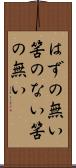 はずの無い
筈のない筈
の無い